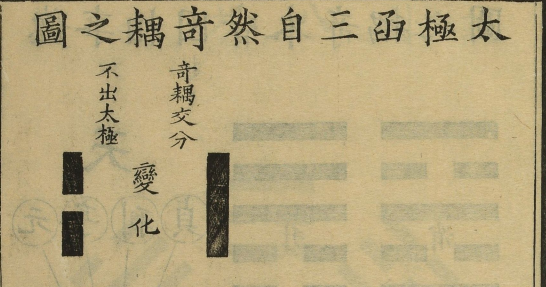 太極圅三自然竒耦之圖
竒耦交分
變化
不出太極